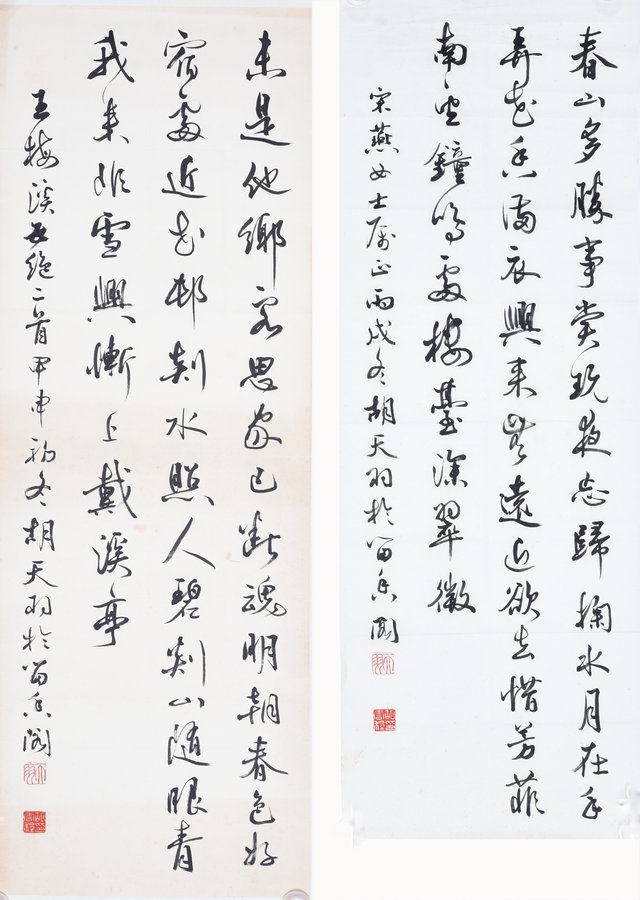 春山多勝事賞玩夜忘歸掬水月在手
弄花香滿衣興來無遠近欲去惜芳菲
南望鐘鳴處樓臺深翠微
宋燕女士屬正丙戌冬胡天羽於留香閣
未是他鄉客思家已斷魂明朝春色好
宿處近花邨剡水照人碧剡山隨眼青
我來非雪興慚上戴溪亭
王梅溪五絕二首甲申初冬胡天羽於留香閣